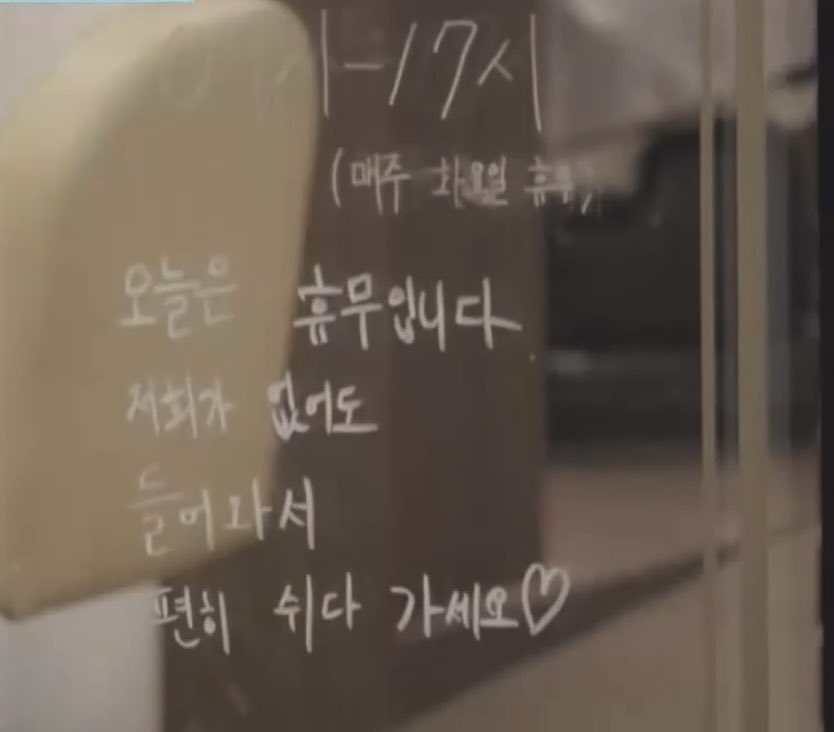 시-17시
(매주 화요일 휴무)
오늘은 휴무입니다
저희가 없어도
들어와서
편히 쉬다 가세요♡